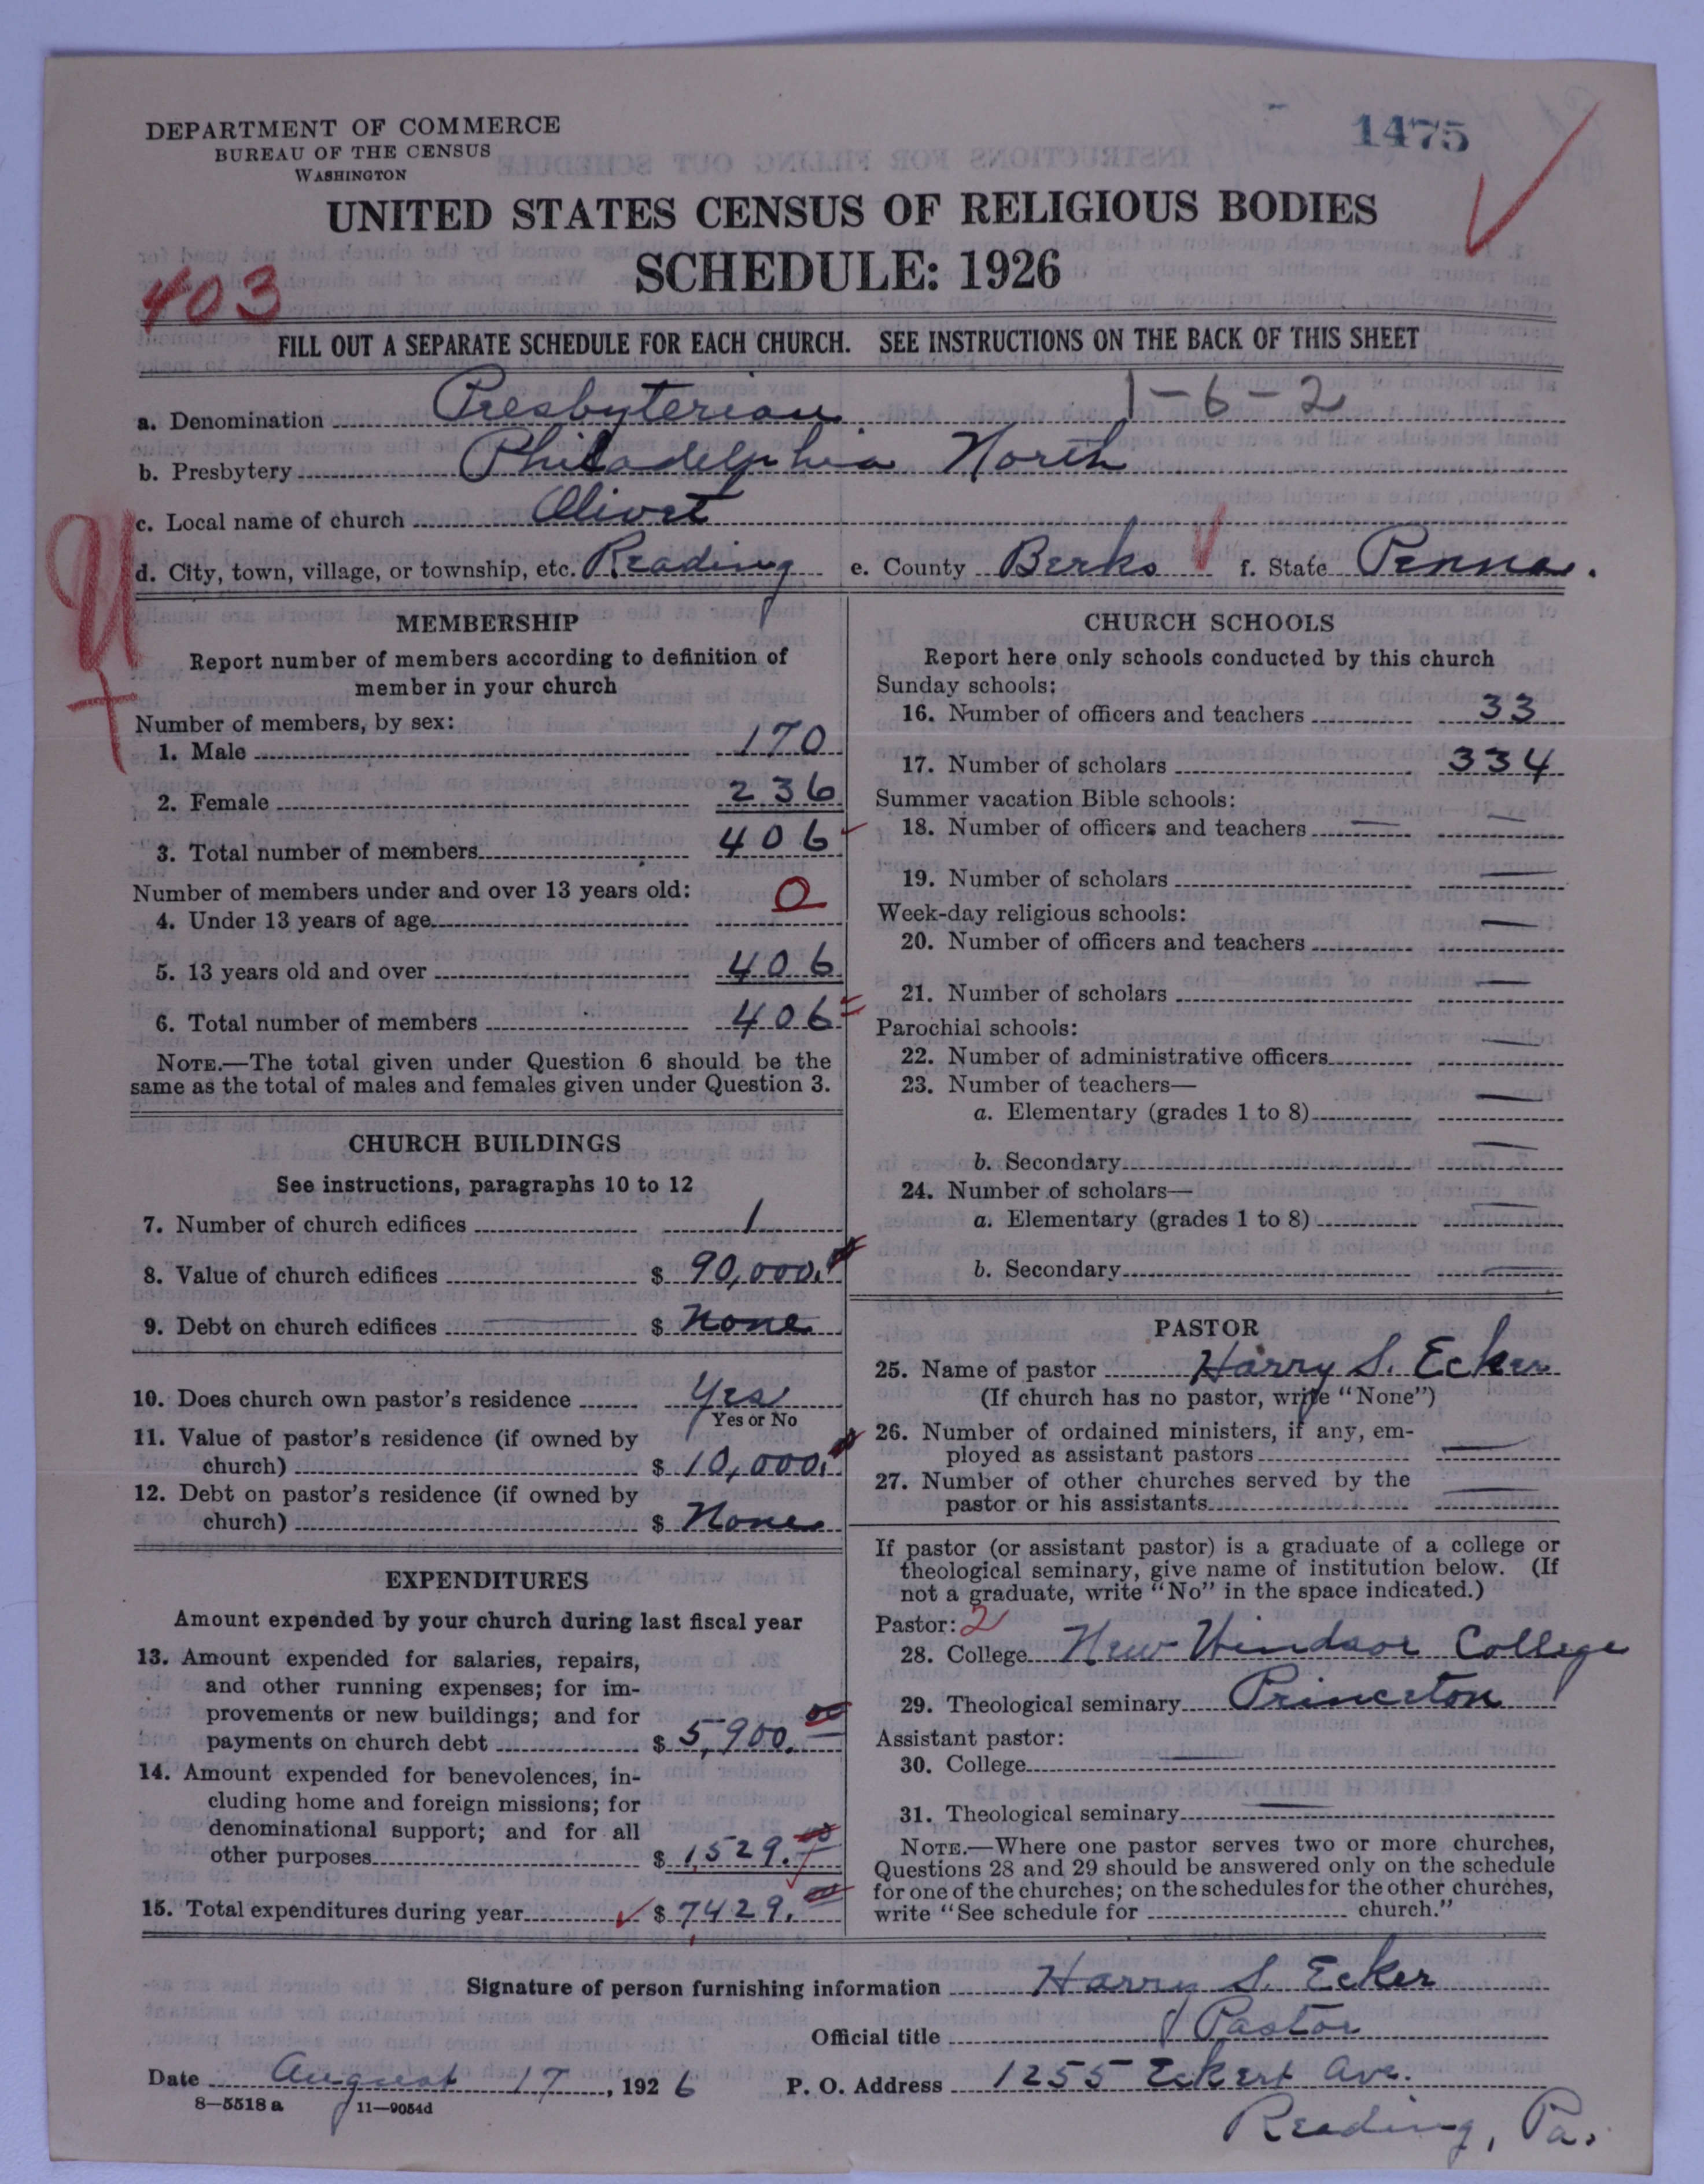 DEPARTMENT OF COMMERCE
BUREAU OF THE CENSUS
WASHINGTON
1475
UNITED STATES CENSUS OF RELIGIOUS BODIES
SCHEDULE: 1926
403
FILL OUT A SEPARATE SCHEDULE FOR EACH CHURCH. SEE INSTRUCTIONS ON THE BACK OF THIS SHEET
a. Denomination Presbyterian 1-6-2
b. Presbytery Philadelphia North
c. Local name of church Olivet
d. City, town, village, or township, etc. Reading e. County Berks f. State Penna.
MEMBERSHIP
Report number of members according to definition of
member in your church
Number of members, by sex:
1. Male 170
2. Female 236
3. Total number of members 406
Number of members under and over 13 years old:
4. Under 13 years of age 0
5. 13 years old and over 406
6. Total number of members 406
NOTE.—The total given under Question 6 should be the
same as the total of males and females given under Question 3.
CHURCH BUILDINGS
See instructions, paragraphs 10 to 12
7. Number of church edifices 1
8. Value of church edifices $ 90,000.00
9. Debt on church edifices $ None
10. Does church own pastor's residence Yes
Yes or No
11. Value of pastor's residence (if owned by
church) $ 10,000.00
12. Debt on pastor's residence (if owned by
church) $ None
EXPENDITURES
Amount expended by your church during last fiscal year
13. Amount expended for salaries, repairs,
and other running expenses; for im-
provements or new buildings; and for
payments on church debt $ 5,900.00
14. Amount expended for benevolences, in-
cluding home and foreign missions; for
denominational support; and for all
other purposes $ 1,529.00
15. Total expenditures during year $ 7,429.00
CHURCH SCHOOLS
Report here only schools conducted by this church
Sunday schools:
16. Number of officers and teachers 33
17. Number of scholars 334
Summer vacation Bible schools:
18. Number of officers and teachers —
19. Number of scholars —
Week-day religious schools:
20. Number of officers and teachers —
21. Number of scholars —
Parochial schools:
22. Number of administrative officers —
23. Number of teachers—
a. Elementary (grades 1 to 8) —
b. Secondary —
24. Number of scholars—
a. Elementary (grades 1 to 8) —
b. Secondary —
PASTOR
25. Name of pastor Harry S. Ecker
(If church has no pastor, write "None")
26. Number of ordained ministers, if any, em-
ployed as assistant pastors —
27. Number of other churches served by the
pastor or his assistants —
If pastor (or assistant pastor) is a graduate of a college or
theological seminary, give name of institution below. (If
not a graduate, write "No" in the space indicated.)
Pastor: 2
28. College New Windsor College
29. Theological seminary Princeton
Assistant pastor:
30. College —
31. Theological seminary —
NOTE.—Where one pastor serves two or more churches,
Questions 28 and 29 should be answered only on the schedule
for one of the churches; on the schedules for the other churches,
write "See schedule for church."
Signature of person furnishing information Harry S. Ecker
Official title Pastor
Date August 17, 1926 P. O. Address 1255 Eckert Ave.
8—5518 a 11—9054d
Reading, Pa.